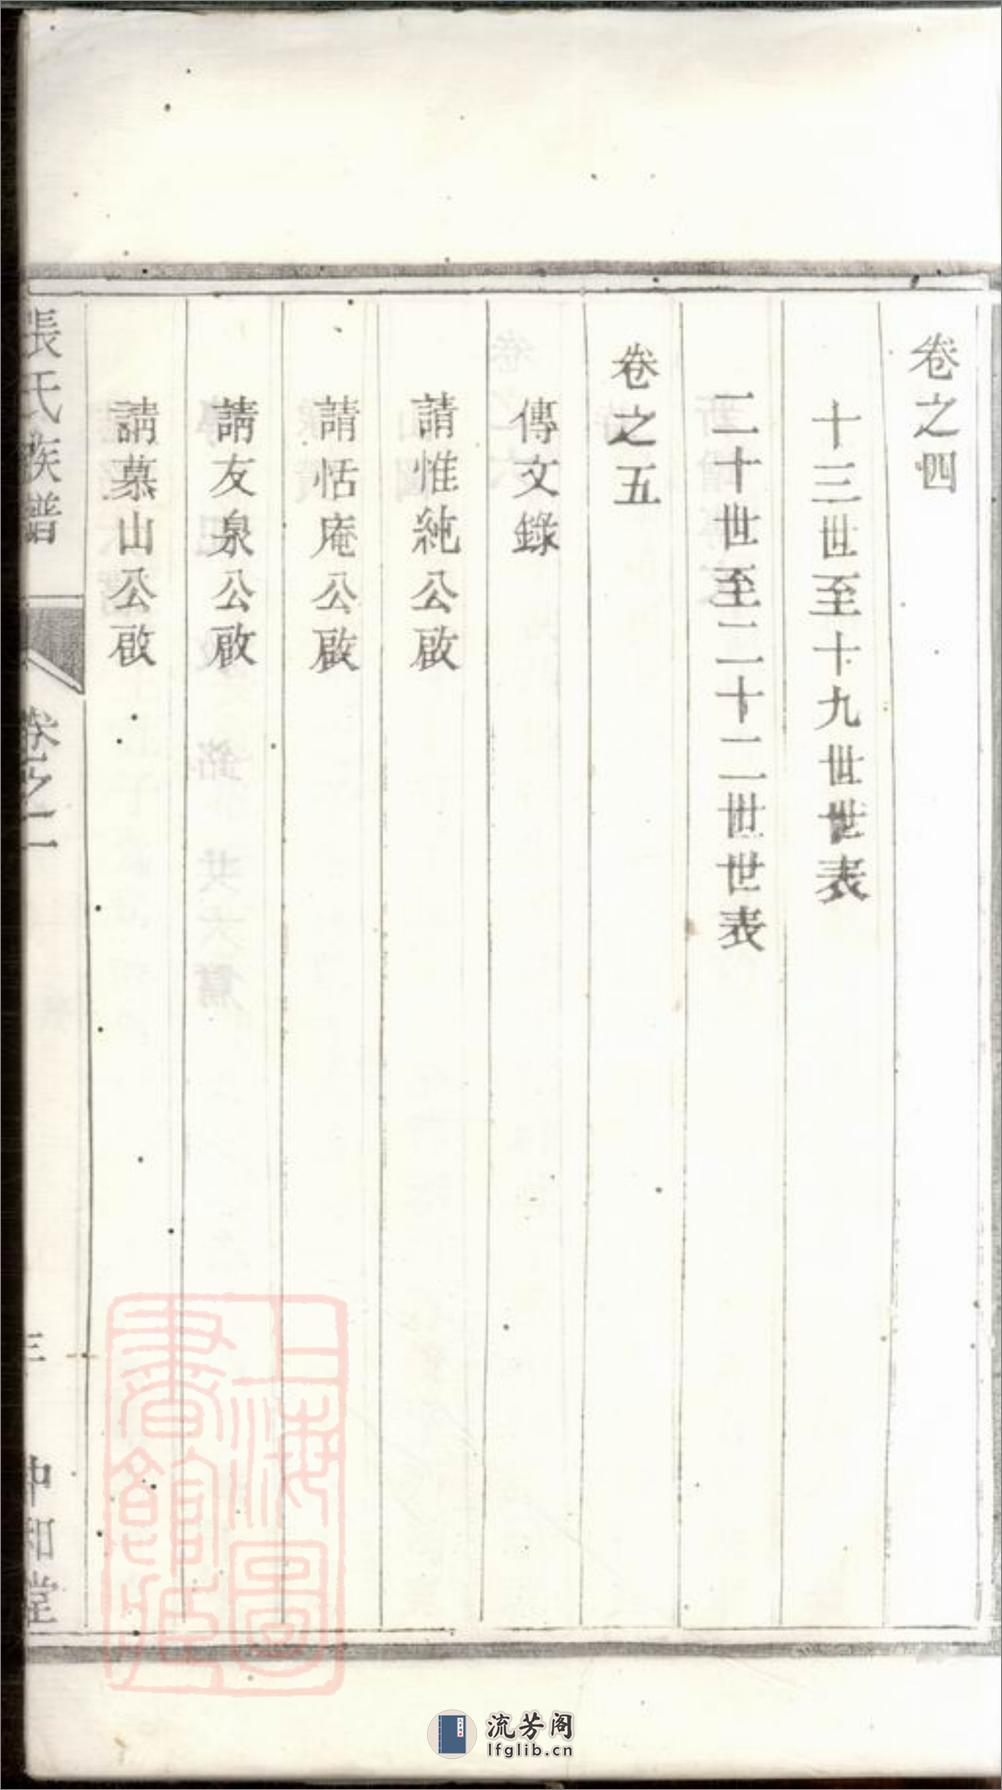 卷之四
十三世至十九世世表
二十世至二十二世世表
卷之五
傳文錄
請惟純公啟
請恬庵公啟
請友泉公啟
請慕山公啟
張氏族譜
卷之二
三
中和堂
上海圖
書館藏
流芳阁
lfglib.cn